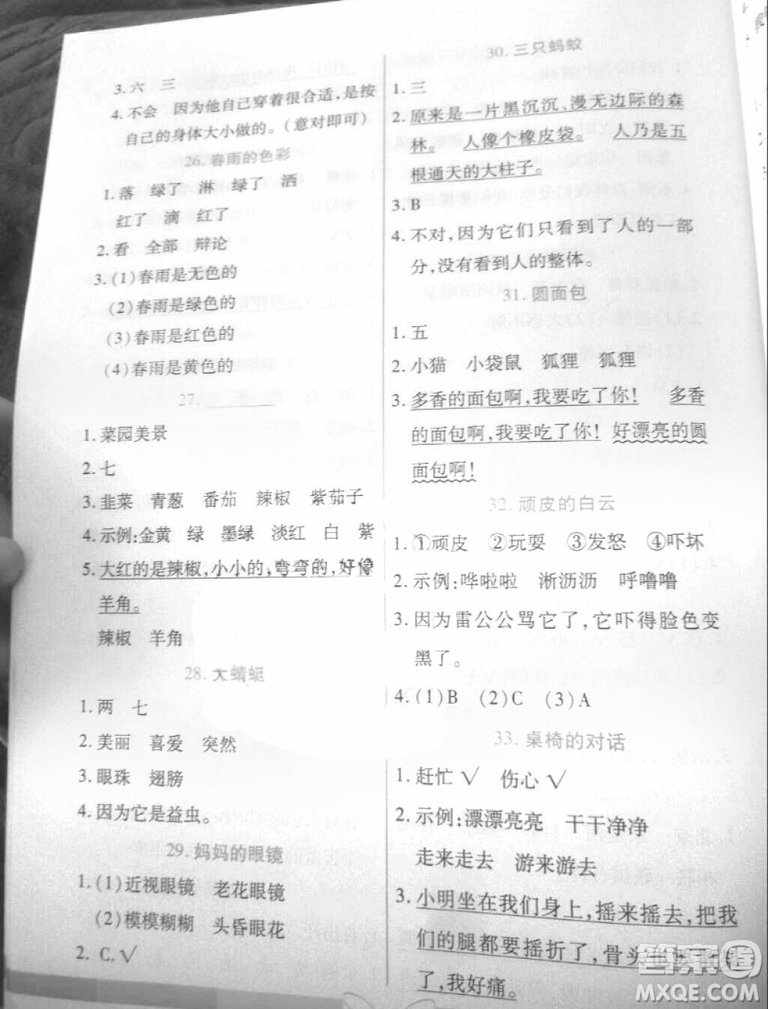 3. 六　三
4. 不会　因为他自己穿着很合适,是按
自己的身体大小做的。(意对即可)
26. 春雨的色彩
1. 落　绿了　淋　绿了　洒
红了　滴　红了
2. 看　全部　辩论
3. (1)春雨是无色的
(2)春雨是绿色的
(3)春雨是红色的
(4)春雨是黄色的
27.
1. 菜园美景
2. 七
3. 韭菜　青葱　番茄　辣椒　紫茄子
4. 示例:金黄　绿　墨绿　淡红　白　紫
5. 大红的是辣椒,小小的,弯弯的,好像
羊角。
辣椒　羊角
28. 大蜻蜓
1. 两　七
2. 美丽　喜爱　突然
3. 眼珠　翅膀
4. 因为它是益虫。
29. 妈妈的眼镜
1. (1)近视眼镜　老花眼镜
(2)模模糊糊　头昏眼花
2. C. √
30. 三只蚂蚁
1. 三
2. 原来是一片黑沉沉、漫无边际的森
林。　人像个橡皮袋。　人乃是五
根通天的大柱子。
3. B
4. 不对,因为它们只看到了人的一部
分,没有看到人的整体。
31. 圆面包
1. 五
2. 小猫　小袋鼠　狐狸　狐狸
3. 多香的面包啊,我要吃了你!　多香
的面包啊,我要吃了你!　好漂亮的圆
面包啊!
32. 顽皮的白云
1. ①顽皮　②玩耍　③发怒　④吓坏
2. 示例:哗啦啦　淅沥沥　呼噜噜
3. 因为雷公公骂它了,它吓得脸色变
黑了。
4. (1)B　(2)C　(3)A
33. 桌椅的对话
1. 赶忙√　伤心√
2. 示例:漂漂亮亮　干干净净
走来走去　游来游去
3. 小明坐在我们身上,摇来摇去,把我
们的腿都要摇折了,骨头也
了,我好痛。
答案圈
MXQE.COM